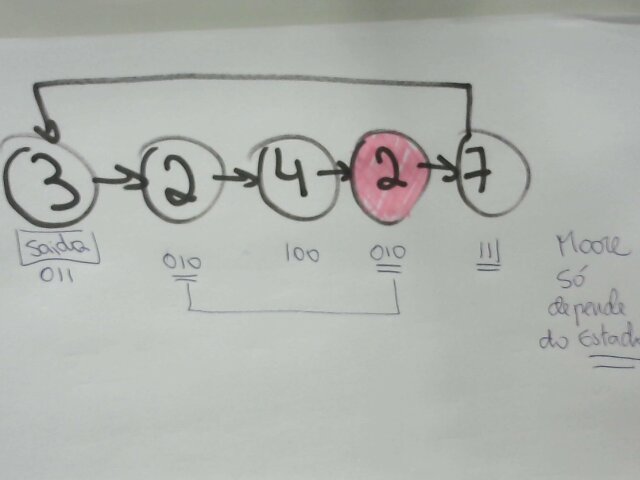 3 2 4 2 7
Saida
011 010 100 010 111
Moore
Só
depende
do Estado